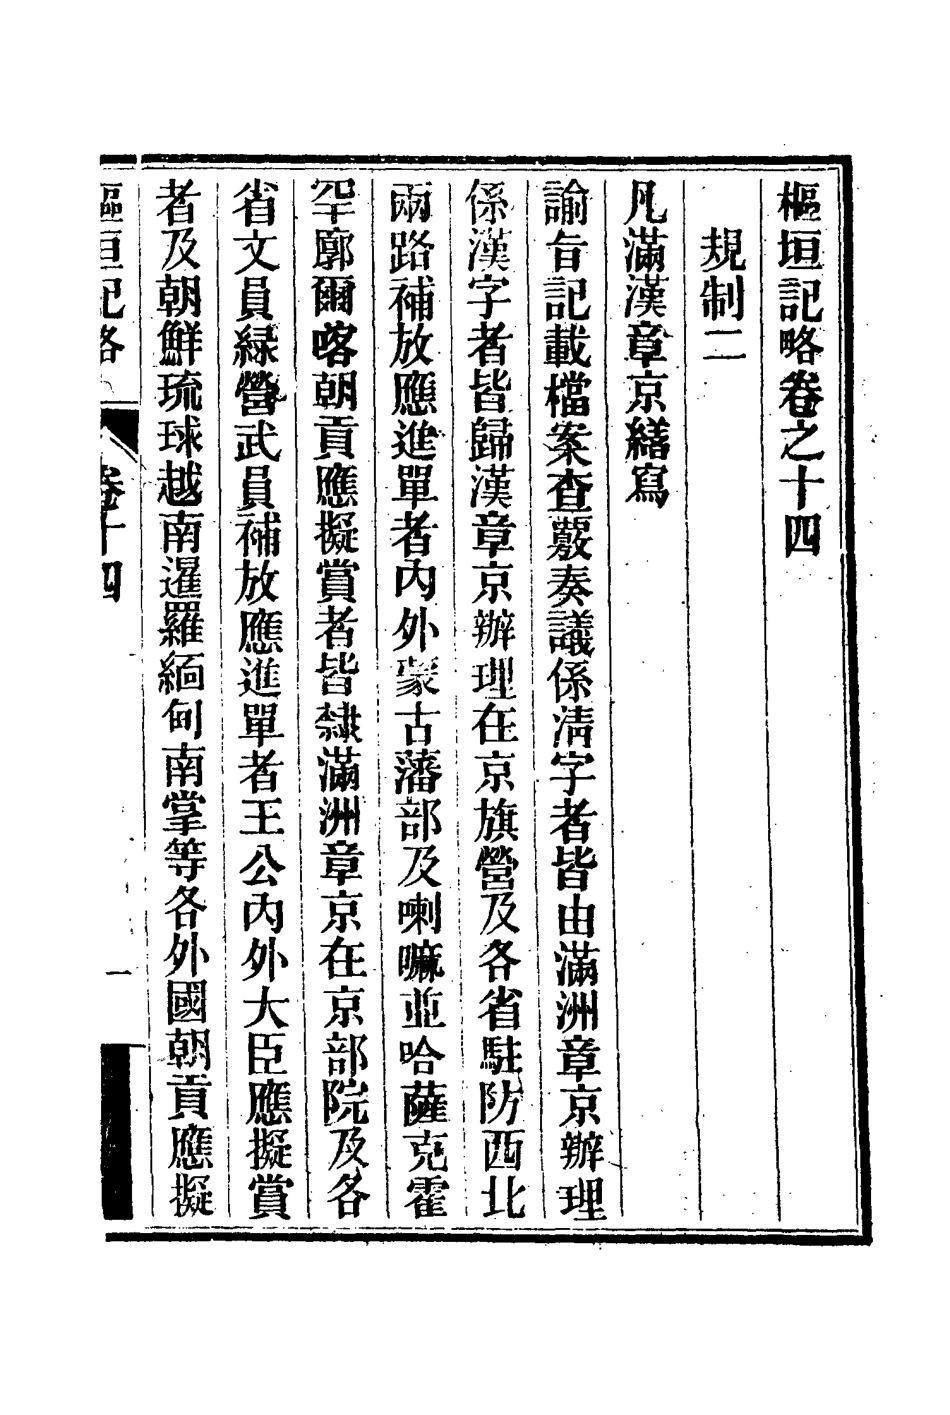 樞垣記略卷之十四
規制二
凡滿漢章京繕寫
諭旨記載檔案查覈奏議係清字者皆由滿洲章京辦理
係漢字者皆歸漢章京辦理在京旗營及各省駐防西北
兩路補放應進單者內外蒙古藩部及喇嘛並哈薩克霍
罕廓爾喀朝貢應擬賞者皆隸滿洲章京在京部院及各
省文員緑營武員補放應進單者王公內外大臣應擬賞
者及朝鮮琉球越南暹羅緬甸南掌等各外國朝貢應擬
樞垣記略
卷十四
一